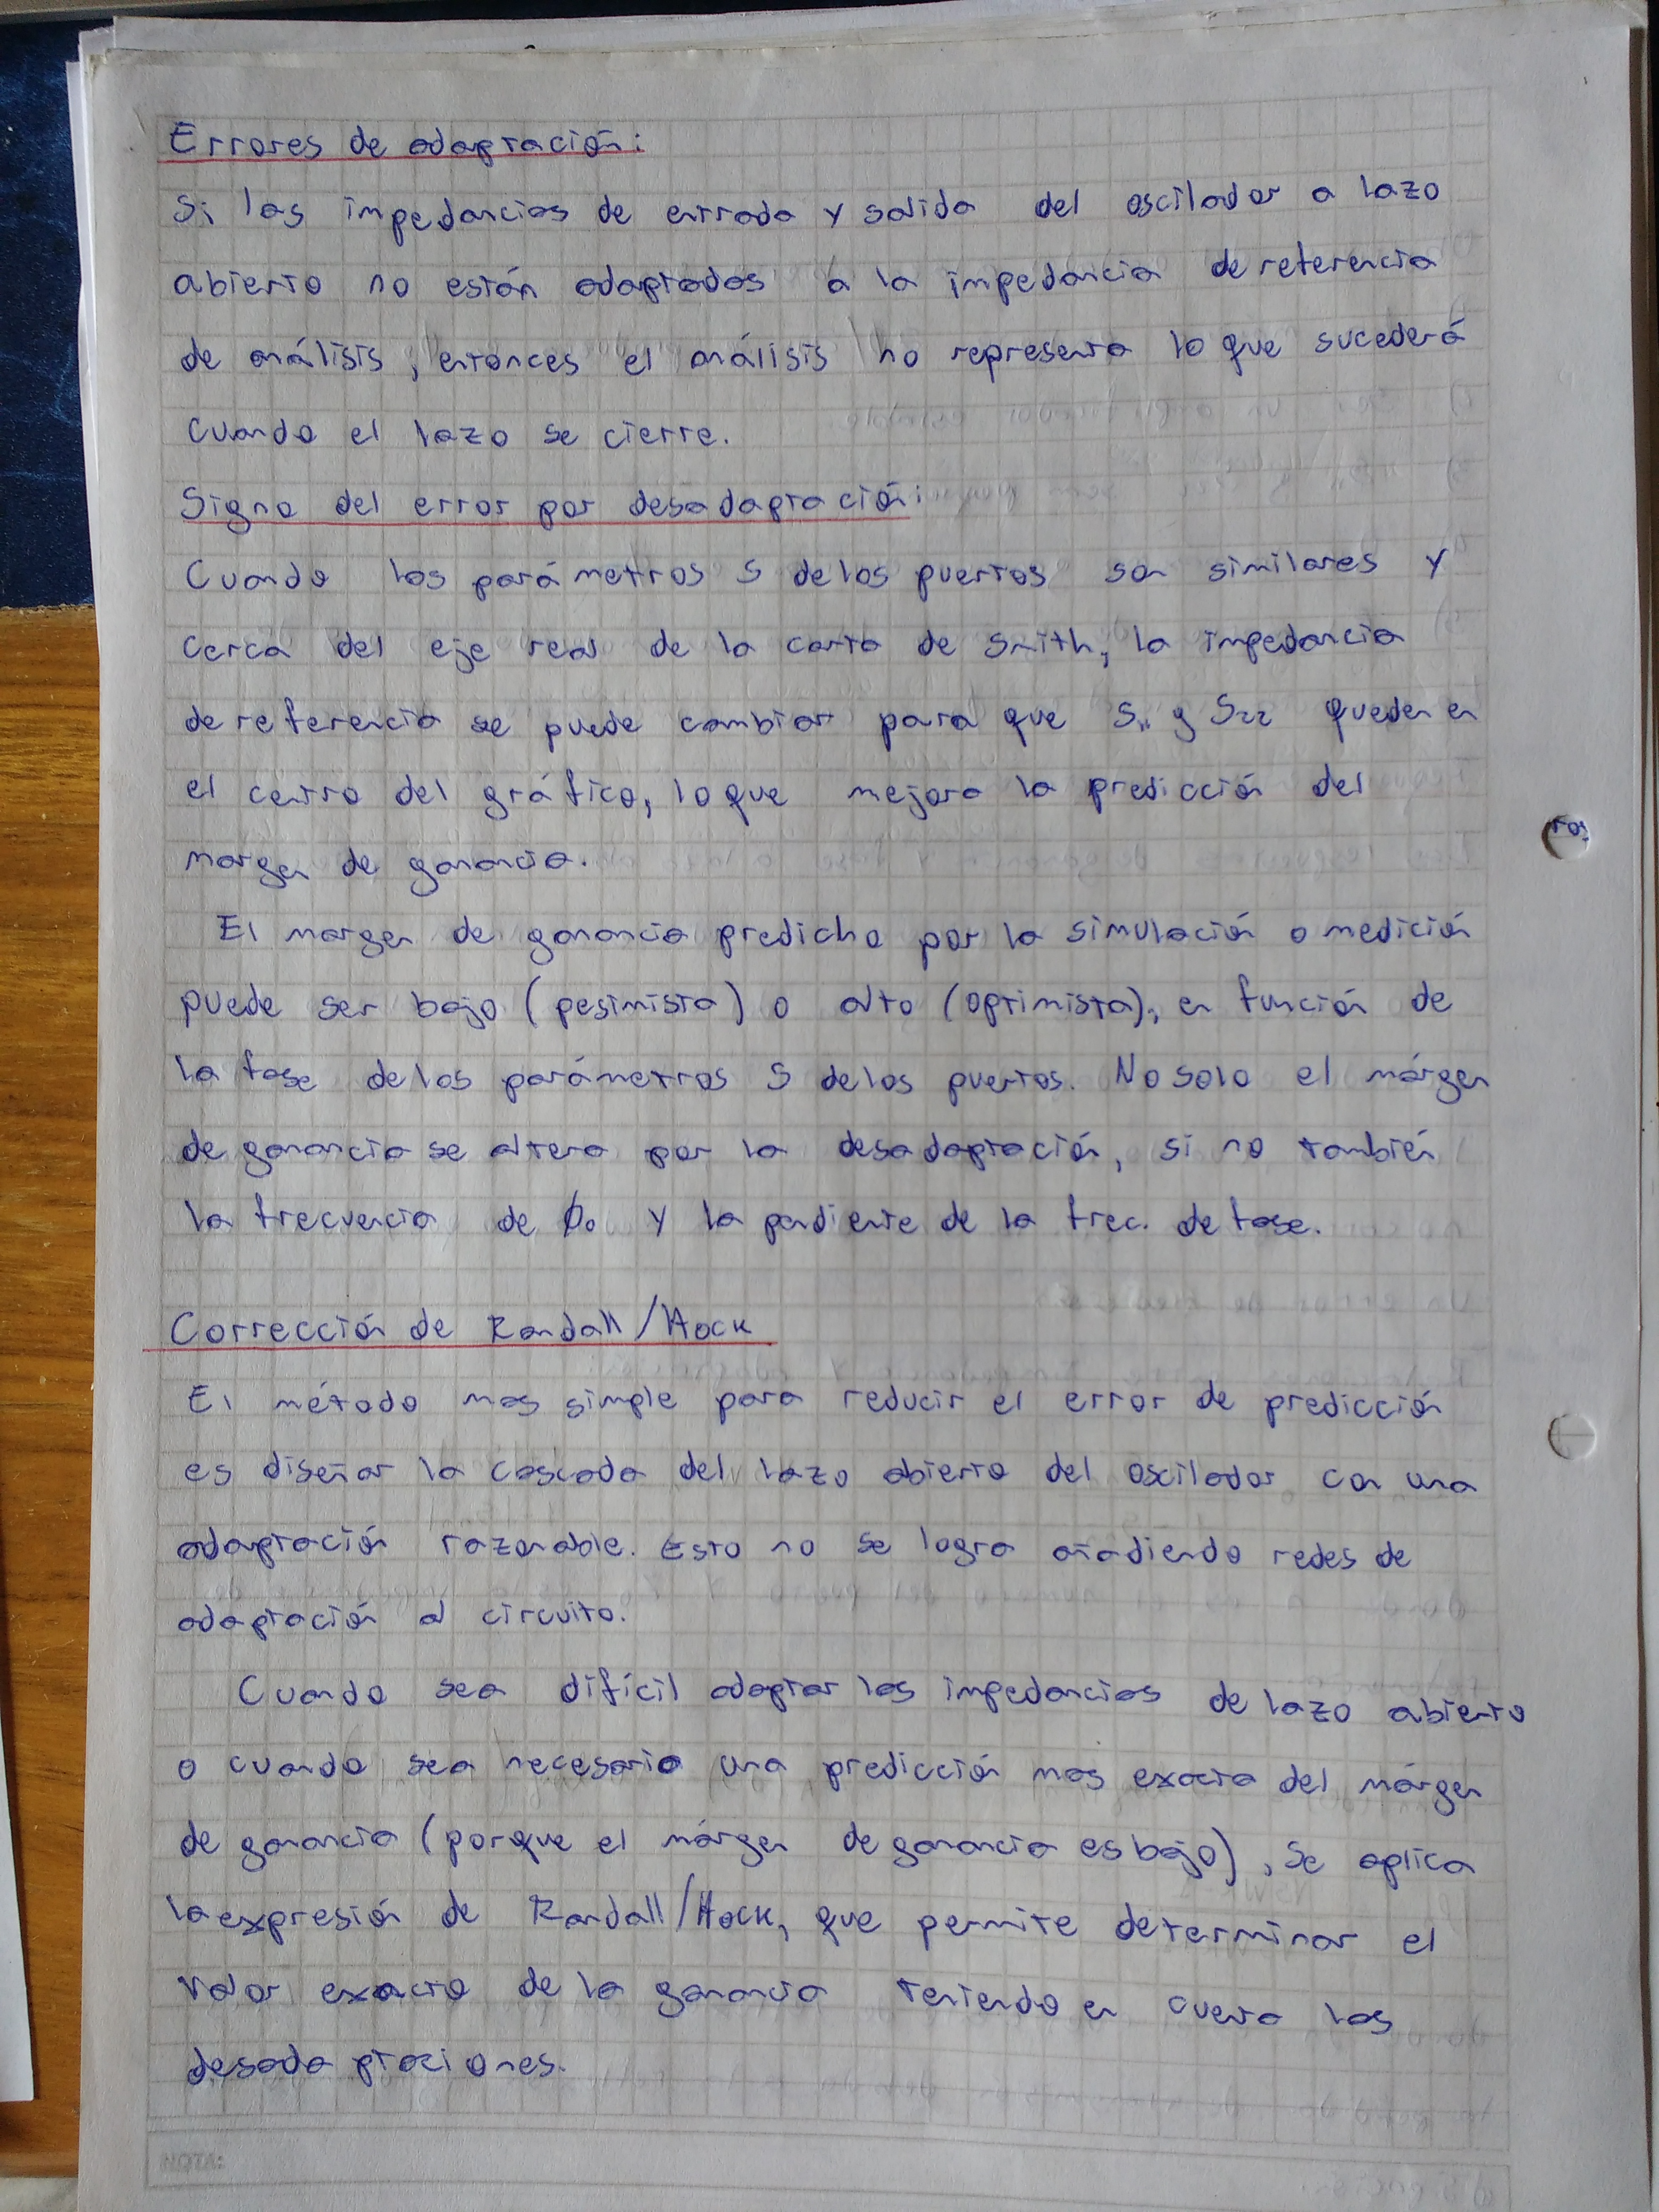 Errores de adaptación:
Si las impedancias de entrada y salida del oscilador a lazo
abierto no están adaptados a la impedancia de referencia
de análisis, entonces el análisis no representa lo que sucederá
cuando el lazo se cierre.
Signo del error por desadaptación:
Cuando los parámetros S de los puertos son similares y
cerca del eje real de la carta de Smith, la impedancia
de referencia se puede cambiar para que S₁₁ y S₂₂ queden en
el centro del gráfico, lo que mejora la predicción del
margen de ganancia.
El margen de ganancia predicho por la simulación o medición
puede ser bajo (pesimista) o alto (optimista), en función de
la fase de los parámetros S de los puertos. No solo el márgen
de ganancia se altera por la desadaptación, si no también
la frecuencia de ϕ₀ y la pendiente de la frec. de fase.
Corrección de Randall/Hock
El método mas simple para reducir el error de predicción
es diseñar la cascada del lazo abierto del oscilador con una
adaptación razonable. Esto no se logra añadiendo redes de
adaptación al circuito.
Cuando sea difícil adaptar las impedancias de lazo abierto
o cuando sea necesario una predicción mas exacta del márgen
de ganancia (porque el márgen de ganancia es bajo), se aplica
la expresión de Randall/Hock, que permite determinar el
valor exacto de la ganancia teniendo en cuenta las
desadaptaciones.
NOTA: